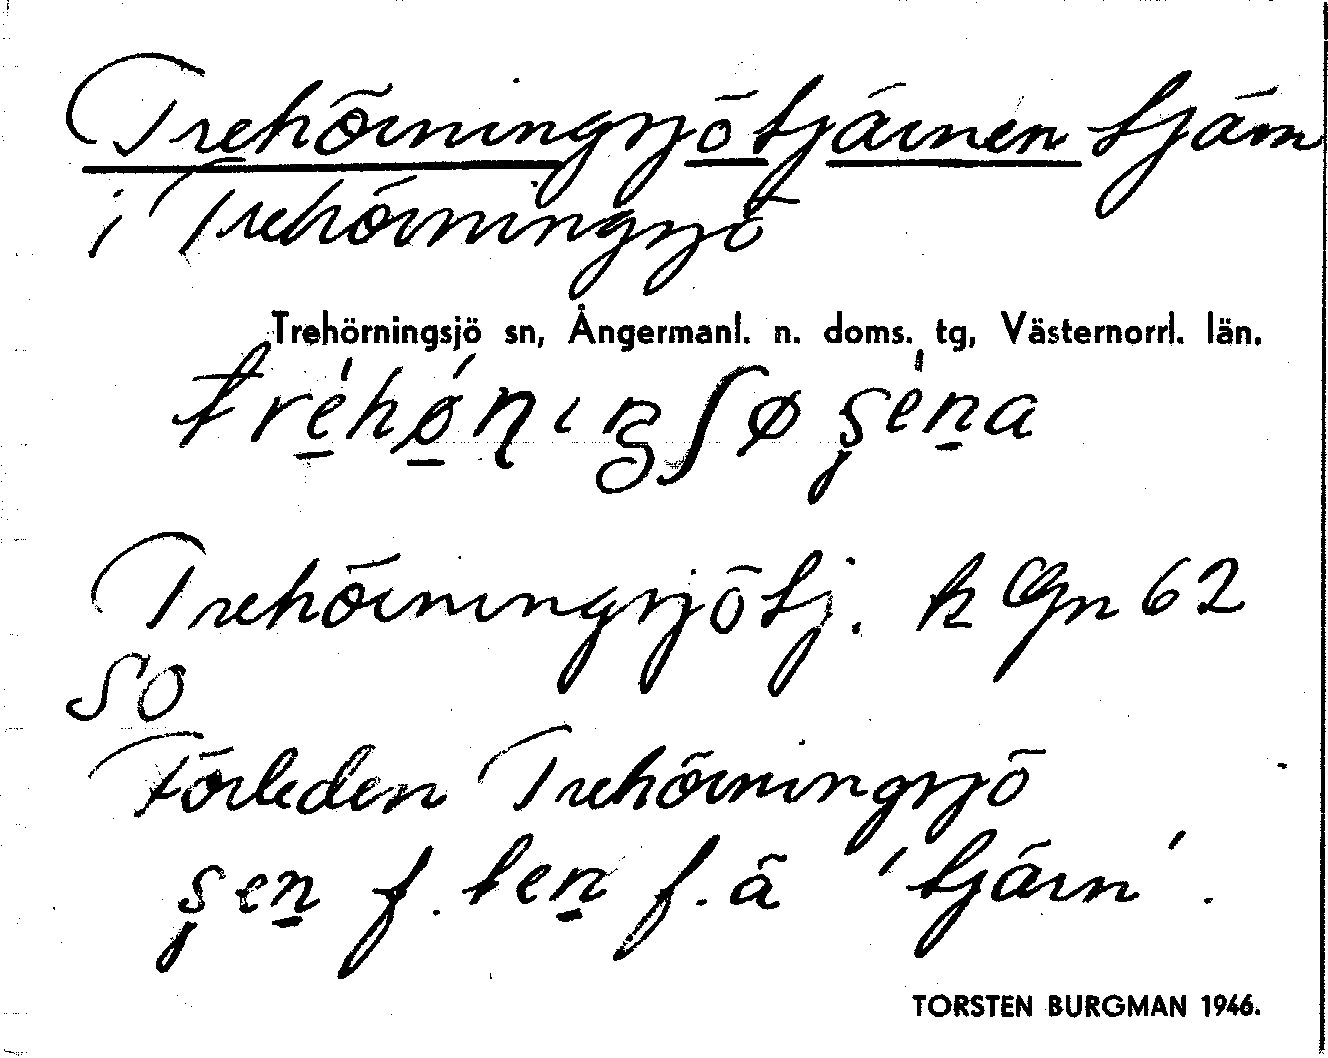 Trehörningsjötjärnen tjärn
i Trehörningsjö
Trehörningsjö sn, Ångermanl. n. doms. tg, Västernorrl. län.
Trehörningsjötj. k Ggn 62
SO
Förleden Trehörningsjö
f. ä 'tjärn'.
TORSTEN BURGMAN 1946.